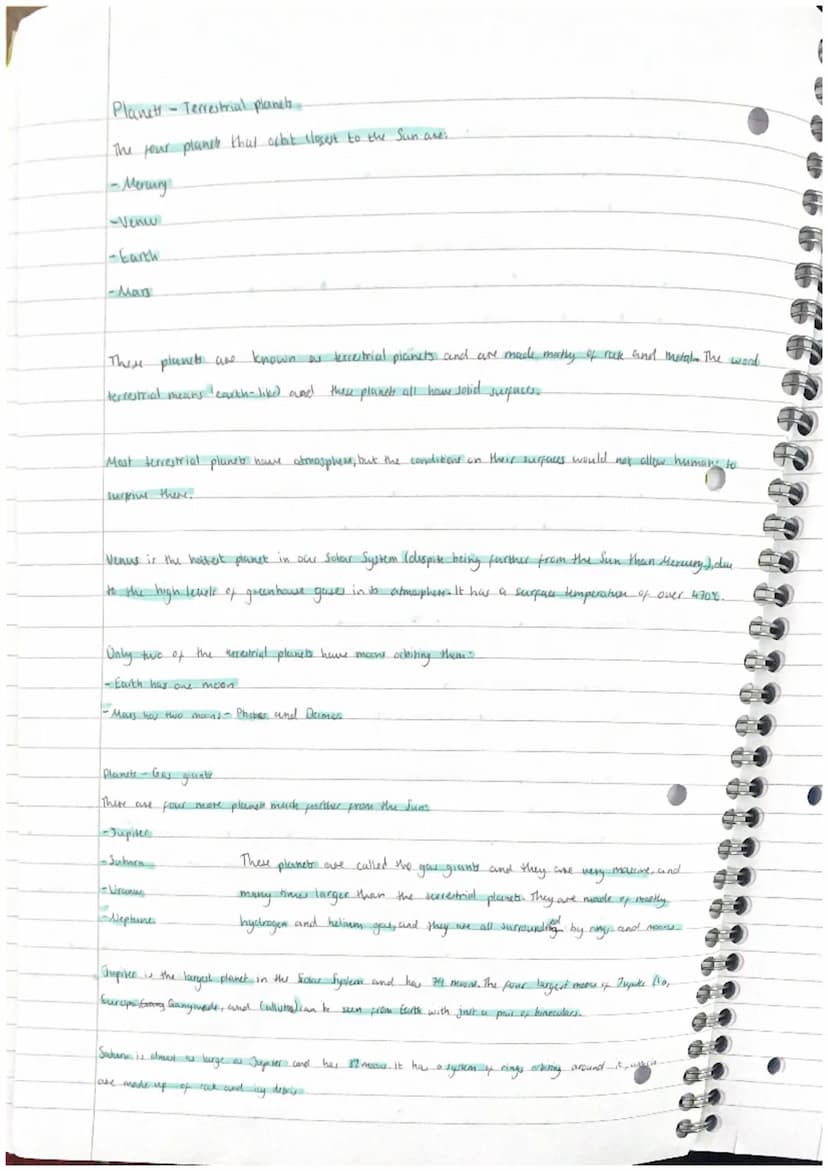 Planets - Terrestrial planets
The four planets that orbit closest to the Sun are:
- Mercury
- Venus
- Earth
- Mars
These planets are known as terrestrial planets and are made mostly of rock and metal. The word
terrestrial means 'earth-like' and these planets all have solid surfaces.
Most terrestrial planets have atmosphere, but the conditions on their surfaces would not allow humans to
survive there.
Venus is the hottest planet in our Solar System (despite being further from the Sun than Mercury), due
to the high levels of greenhouse gases in its atmosphere. It has a surface temperature of over 470°C.
Only two of the terrestrial planets have moons orbiting them:
- Earth has one moon
- Mars has two moons - Phobos and Deimos
Planets - Gas giants
There are four more planets much further from the Sun:
- Jupiter
- Saturn
- Uranus
- Neptune
These planets are called the gas giants and they are very massive, and
many times larger than the terrestrial planets. They are made of mostly
hydrogen and helium gas, and they are all surrounded by rings and moons.
Jupiter is the largest planet in the Solar System and has 79 moons. The four largest moons of Jupiter (Io,
Europa, Ganymede, and Callisto) can be seen from Earth with just a pair of binoculars.
Saturn is almost as large as Jupiter and has 82 moons. It has a system of rings orbiting around it, which
are made up of rock and icy debris